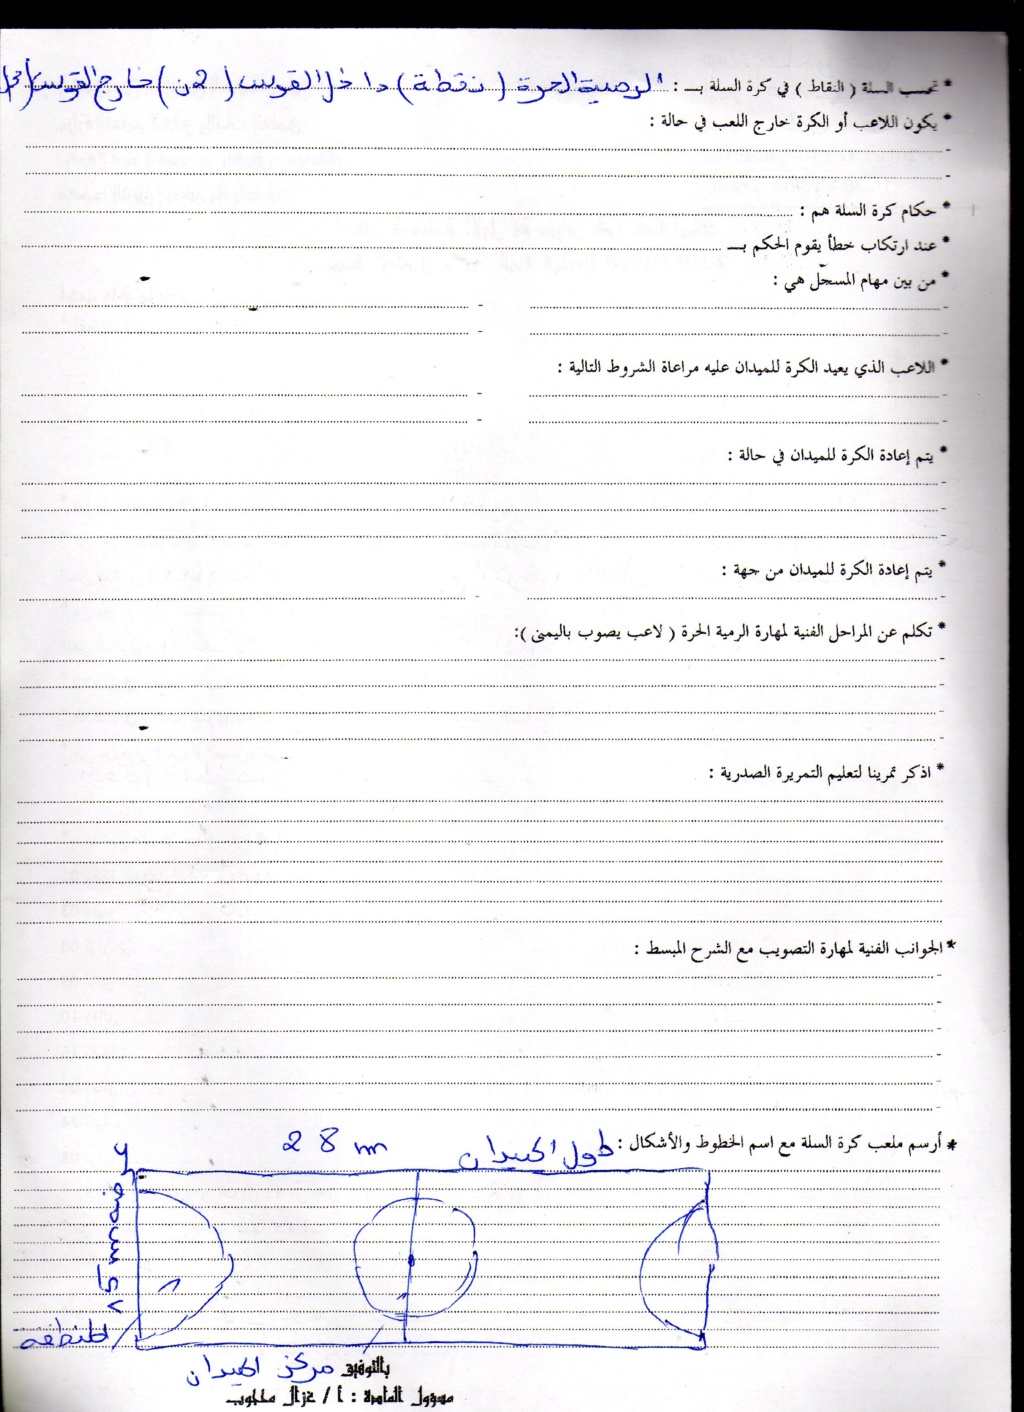 * تحسب السلة ( النقاط ) في كرة السلة بـــ : الرمية الحرة ( نقطة ) داخل القوس ( 2ن ) خارج القوس (
* يكون اللاعب أو الكرة خارج اللعب في حالة :
-
-
* حكام كرة السلة هم :
* عند ارتكاب خطأ يقوم الحكم بـــ
* من بين مهام المسجّل هي :
- -
- -
* اللاعب الذي يعيد الكرة للميدان عليه مراعاة الشروط التالية :
- -
- -
* يتم إعادة الكرة للميدان في حالة :
-
-
-
* يتم إعادة الكرة للميدان من جهة :
- -
* تكلم عن المراحل الفنية لمهارة الرمية الحرة ( لاعب يصوب باليمنى ):
-
-
-
-
* اذكر تمرينا لتعليم التمريرة الصدرية :
* الجوانب الفنية لمهارة التصويب مع الشرح المبسط :
-
-
-
-
-
-
* أرسم ملعب كرة السلة مع اسم الخطوط والأشكال :
طول الميدان 28 m
15 m
المنطقة
مركز الميدان
بالتوفيق
مسؤول المادة : أ / غزال محجوب